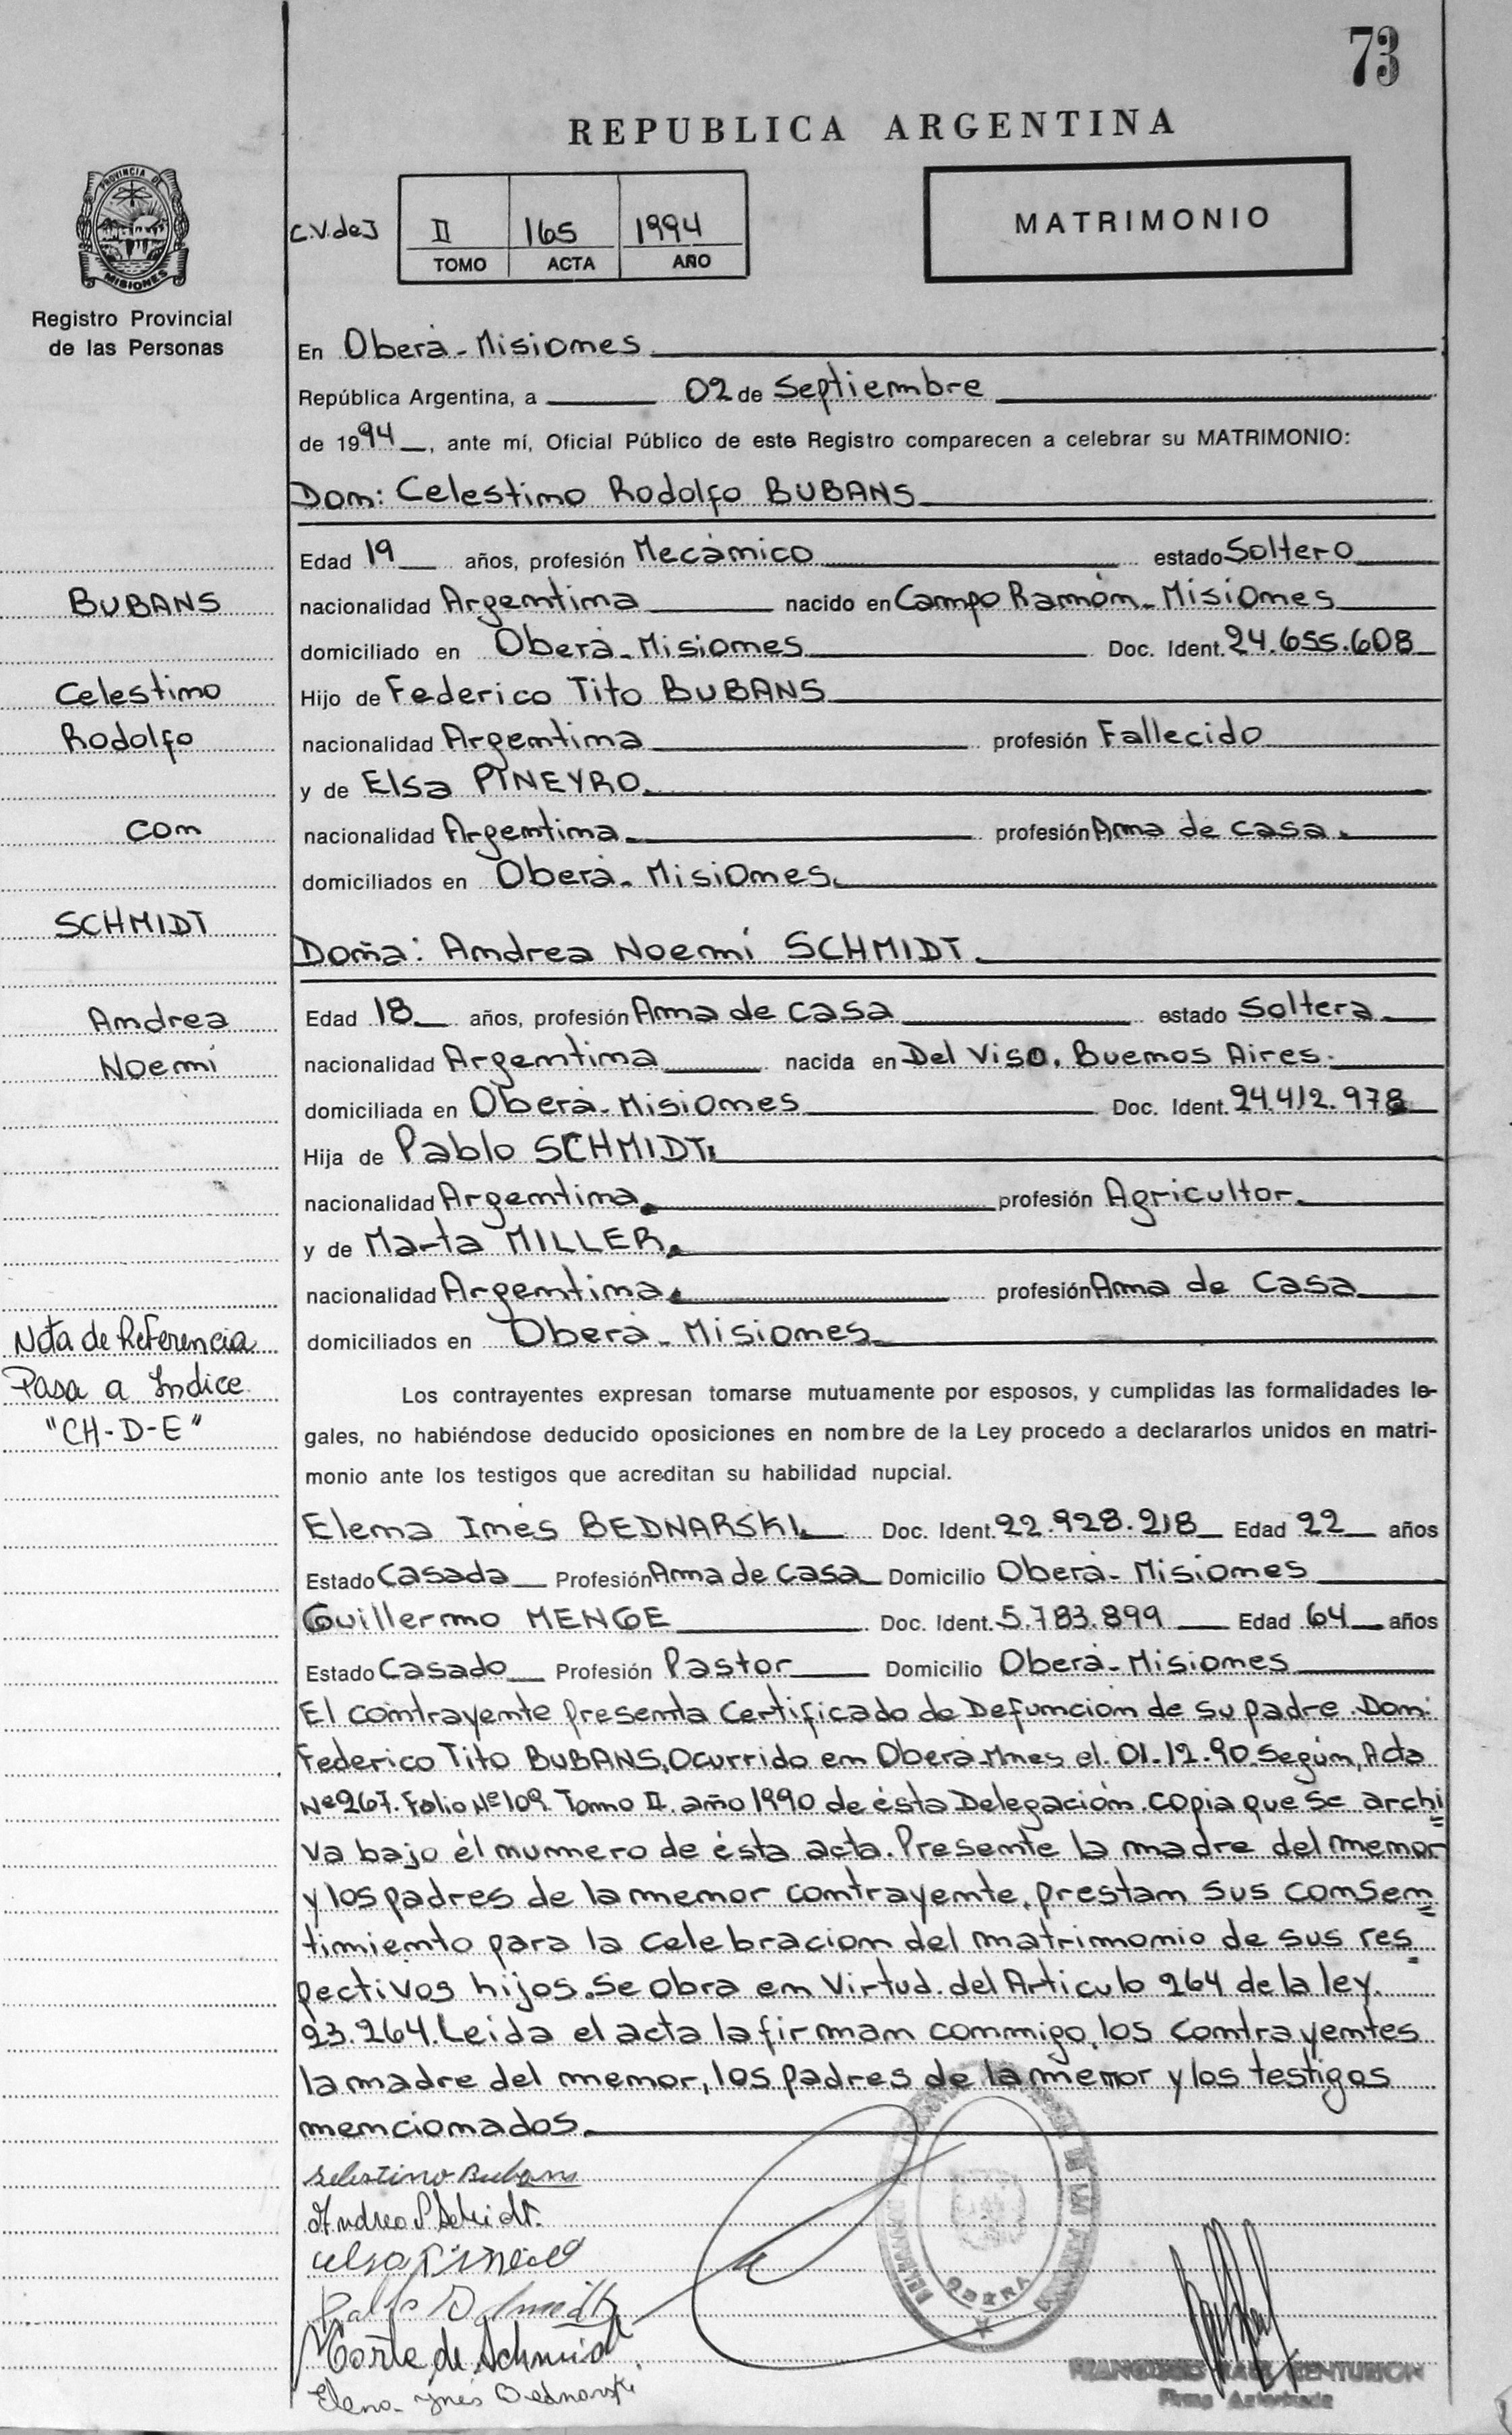 73
REPUBLICA ARGENTINA
PROVINCIA DE
MISIONES
Registro Provincial
de las Personas
C.V.deJ
II 165 1994
TOMO ACTA AÑO
MATRIMONIO
En Oberá-Misiones
República Argentina, a 02 de Septiembre
de 1994, ante mí, Oficial Público de este Registro comparecen a celebrar su MATRIMONIO:
Don: Celestino Rodolfo BUBANS
Edad 19 años, profesión Mecánico estado Soltero
BUBANS
nacionalidad Argentina nacido en Campo Ramón-Misiones
domiciliado en Oberá-Misiones Doc. Ident. 24.655.608
Celestino
Hijo de Federico Tito BUBANS
Rodolfo
nacionalidad Argentina profesión Fallecido
y de Elsa PINEYRO.
con
nacionalidad Argentina. profesión Ama de casa.
domiciliados en Oberá-Misiones.
SCHMIDT
Doña: Andrea Noemí SCHMIDT.
Andrea
Edad 18 años, profesión Ama de casa estado Soltera
Noemí
nacionalidad Argentina nacida en Del Viso. Buenos Aires.
domiciliada en Oberá-Misiones Doc. Ident. 24.412.978
Hija de Pablo SCHMIDT.
nacionalidad Argentina. profesión Agricultor.
y de Marta MILLER.
nacionalidad Argentina. profesión Ama de Casa
domiciliados en Oberá-Misiones
Nota de Referencia
Pasa a Indice
"CH-D-E"
Los contrayentes expresan tomarse mutuamente por esposos, y cumplidas las formalidades le-
gales, no habiéndose deducido oposiciones en nombre de la Ley procedo a declararlos unidos en matri-
monio ante los testigos que acreditan su habilidad nupcial.
Elena Inés BEDNARSKI. Doc. Ident. 22.928.218 Edad 22 años
Estado Casada Profesión Ama de Casa Domicilio Oberá-Misiones
Guillermo MENGE Doc. Ident. 5.783.899 Edad 64 años
Estado Casado Profesión Pastor Domicilio Oberá-Misiones
El contrayente presenta Certificado de Defunción de su padre Don:
Federico Tito BUBANS, Ocurrido en Oberá-Mnes el. 01-12-90. Según, Acta
Nº267. Folio Nº109. Tomo II. año 1990 de ésta Delegación. Copia que se archi
va bajo él numero de ésta acta. Presente la madre del menor
y los padres de la menor contrayente, prestan sus consen
timiento para la celebracion del matrimonio de sus res
pectivos hijos. Se obra en Virtud. del Articulo 264 de la ley.
23.264. Leída el acta la firman conmigo, los contrayentes
la madre del menor, los padres de la menor y los testigos
mencionados.
Celestino Bubans
Andrea Schmidt.
Pablo Schmidt
OBERA
de Schmidt
Elena Ynés Bednarski
CENTURION
Firma Autorizada